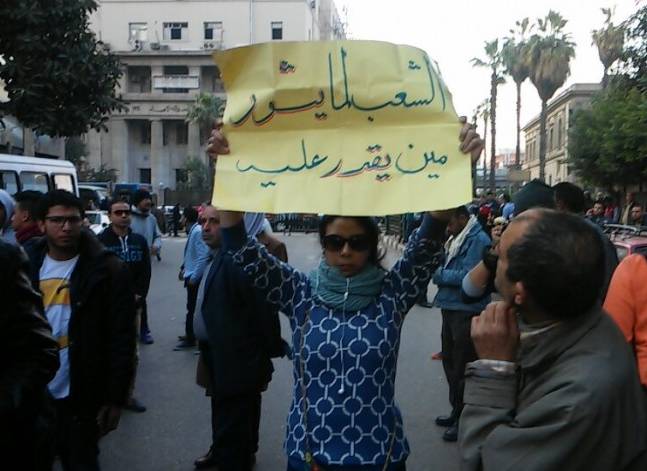 الشعب لما يثور
مين يقدر عليه